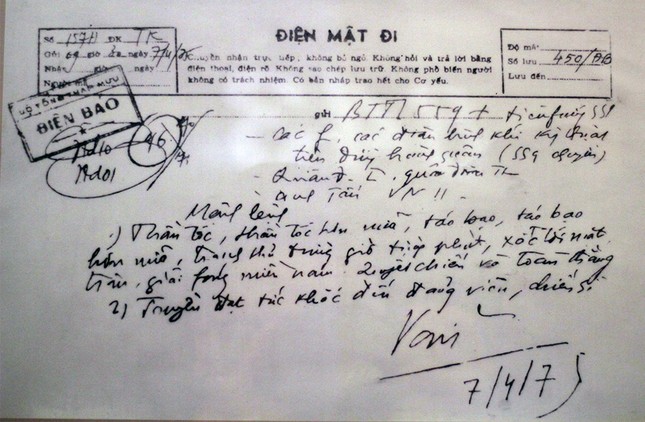 ĐIỆN MẬT ĐI
Số 157H ĐK TK
Gửi giờ ngày 7/4/75
Nhận giờ ngày
Người mã
Chuyển nhận trực tiếp, không bỏ ngỏ. Không hỏi và trả lời bằng
điện thoại, điện rõ. Không sao chép lưu trữ. Không phổ biến người
không có trách nhiệm. Có bản nháp trao hết cho Cơ yếu.
Độ mật
Số lưu 450/ĐB
Lưu đến
BỘ TỔNG THAM MƯU
ĐIỆN BÁO
46
gửi BTTL 559 +
- Các f, các đơn binh khí kỹ thuật
trên đường hành quân (559 chuyển)
- Quân đ. I, quân đoàn
- Cung Tấn VN !!
Mệnh lệnh
1) Thần tốc, thần tốc hơn nữa, táo bạo, táo bạo
hơn nữa, tranh thủ từng giờ từng phút, xốc tới mặt
trận, giải fóng miền nam. Quyết chiến và toàn thắng
2) Truyền đạt tức khắc đến đảng viên, chiến sĩ
Văn
7/4/75